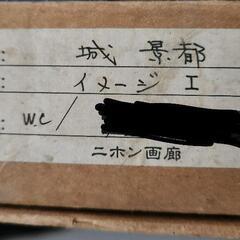 : 城 景都
: イメージ I
: w.c/
ニホン画廊